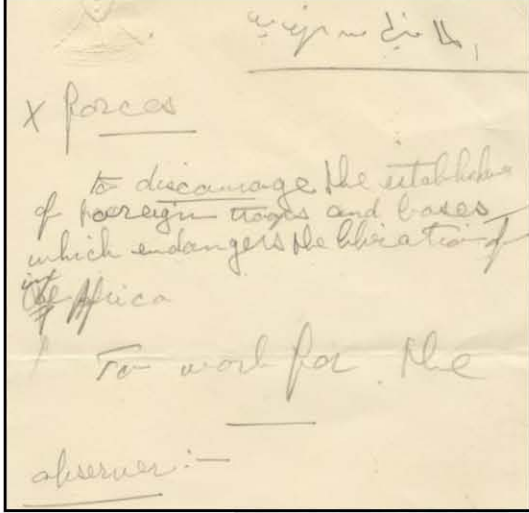 X forces
to discourage the
of foreign troops and bases
which endangers the liberation of
Africa
To work for the
observer :-